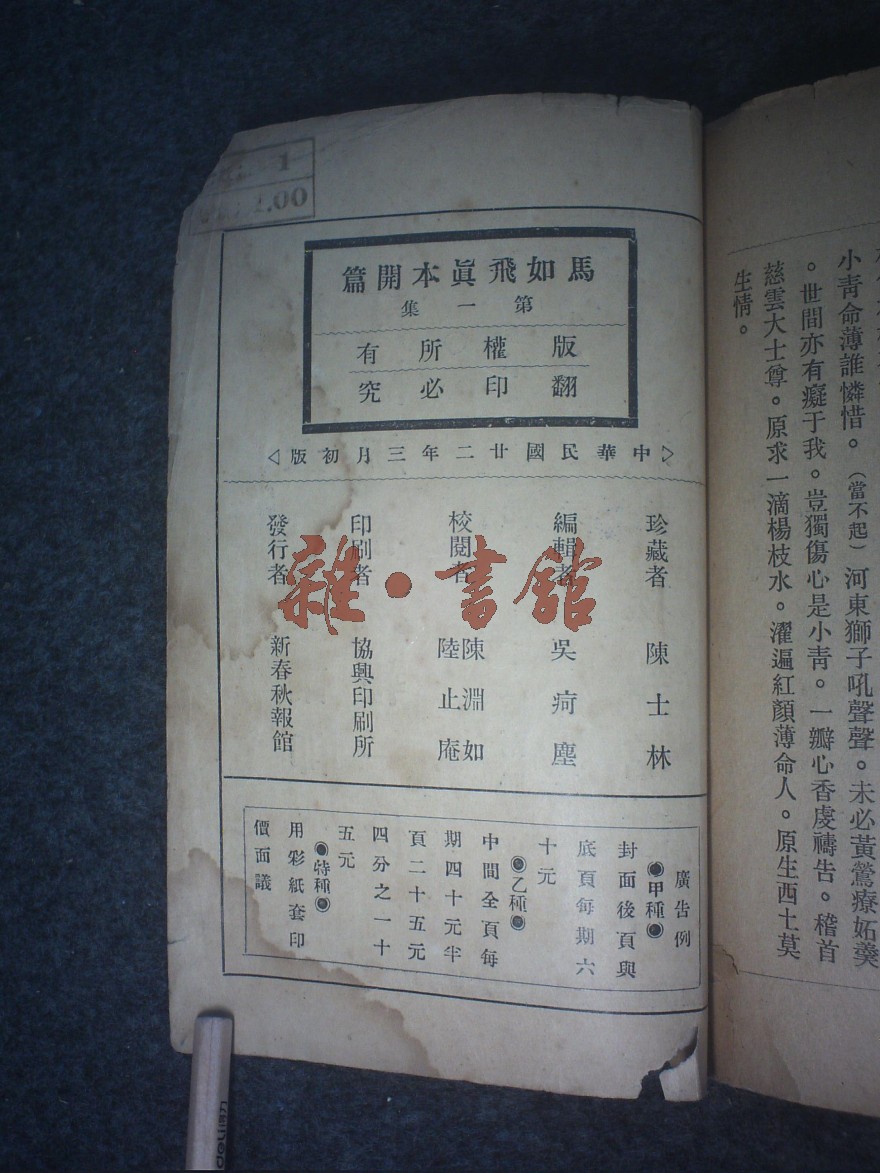 馬如飛眞本開篇
第一集
版權所有
翻印必究
中華民國廿二年三月初版
珍藏者 陳士林
編輯者 吳疴塵
校閱者 陳淵如 陸止庵
印刷者 協興印刷所
發行者 新春秋報館
廣告例
◉甲種◉
封面後頁與
底頁每期六
十元
◉乙種◉
中間全頁每
期四十元半
頁二十五元
四分之一十
五元
◉特種◉
用彩紙套印
價面議
1
1.00
雜·書館
deli得力
小靑命薄誰憐惜。(當不起)河東獅子吼聲聲。未必黃鶯療妬羹
。世間亦有癡于我。豈獨傷心是小靑。一瓣心香虔禱告。稽首
慈雲大士尊。原求一滴楊枝水。濯遍紅顏薄命人。原生西土莫
生情。